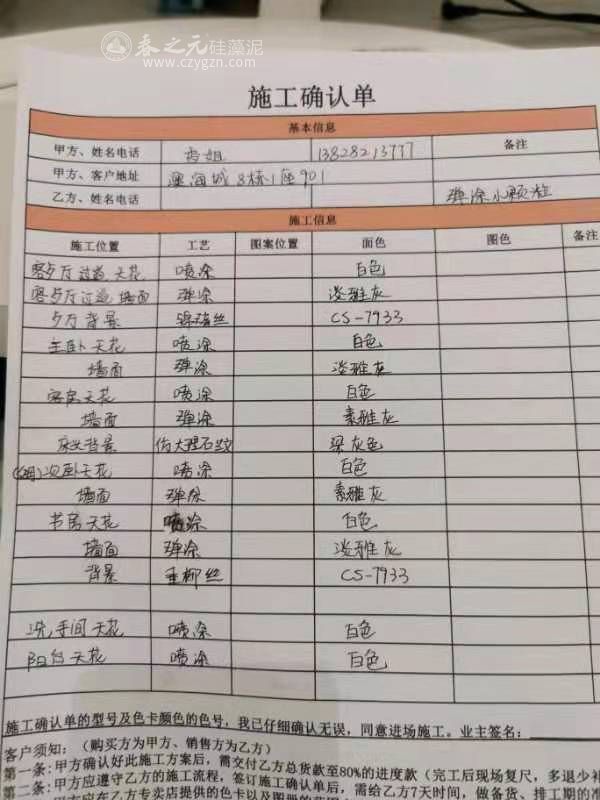 春之元硅藻泥
www.czygzn.com
施工确认单
基本信息
甲方、姓名电话 姐 13828213777 备注
甲方、客户地址 澳海城8栋1座901
乙方、姓名电话 弹涂小颗粒
施工信息
施工位置 工艺 图案位置 面色 图色 备注
客歺厅过道天花 喷涂 白色
客歺厅过道墙面 弹涂 淡雅灰
歺厅背景 丝 CS-7933
主卧天花 喷涂 白色
墙面 弹涂 淡雅灰
客房天花 喷涂 白色
墙面 弹涂 素雅灰
床头背景 仿大理石纹 灰色
次卧天花 喷涂 白色
墙面 弹涂 素雅灰
书房天花 喷涂 白色
墙面 弹涂 淡雅灰
背景 垂柳丝 CS-7933
洗手间天花 喷涂 白色
阳台天花 喷涂 白色
施工确认单的型号及色卡颜色的色号，我已仔细确认无误，同意进场施工。业主签名：
客户须知：（购买方为甲方、销售方为乙方）
第一条:甲方确认好此施工方案后，需交付乙方总货款至80%的进度款（完工后现场复尺，多退少补
第二条:甲方应遵守乙方的施工流程，签订施工确认单后，需给乙方7天时间，做备货、排工期的准
甲方应在乙方专卖店提供的色卡以及图册的